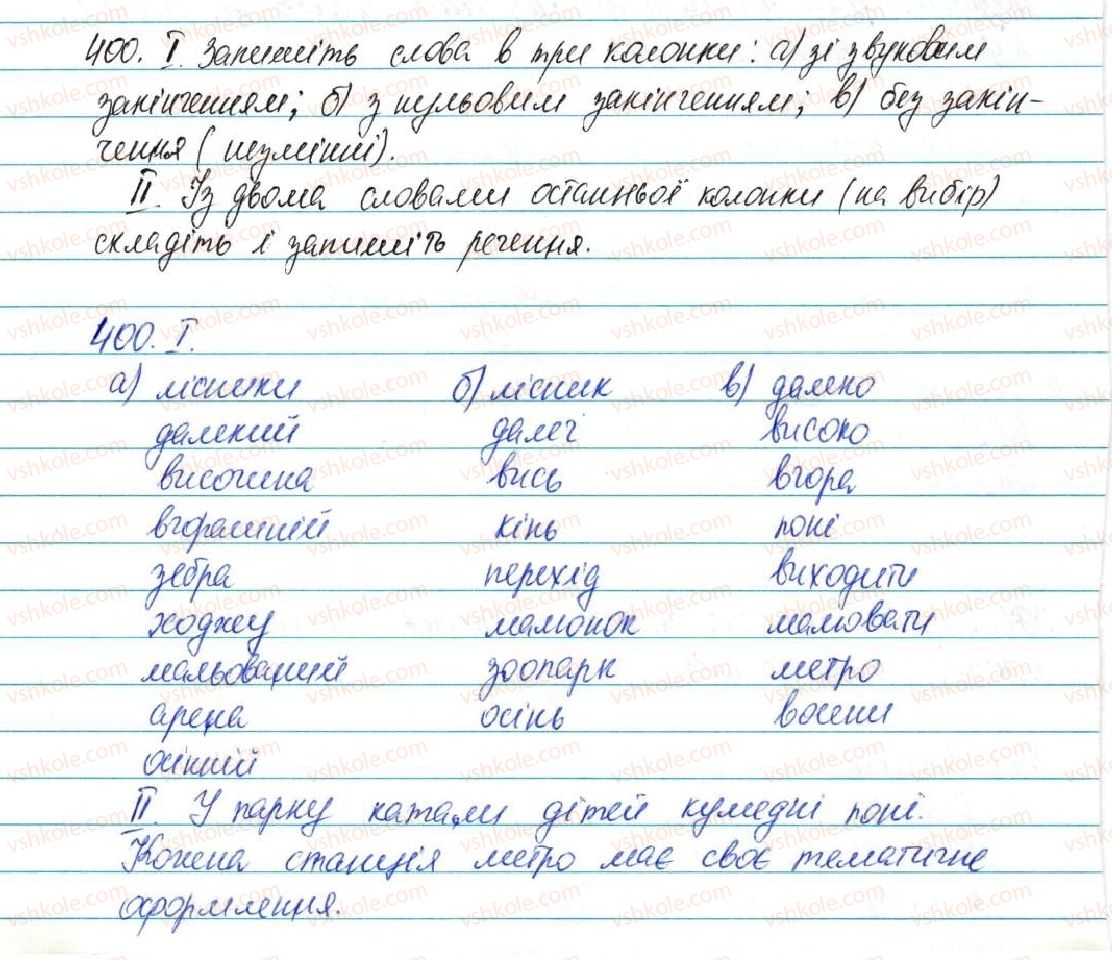 400. I. Запишіть слова в три колонки: а) зі звуковим
закінченням; б) з нульовим закінченням; в) без закін-
чення (незмінні).
II. Із двома словами останньої колонки (на вибір)
складіть і запишіть речення.
400. I.
а) лісники б) лісник в) далеко
далекий далеч високо
височина вись вгора
вгорашній кінь поні
зебра перехід виходити
ходжу малюнок малювати
мальований зоопарк метро
арена осінь восени
осінній
II. У парку катали дітей кумедні поні.
Кожна станція метро має своє тематичне
оформлення.